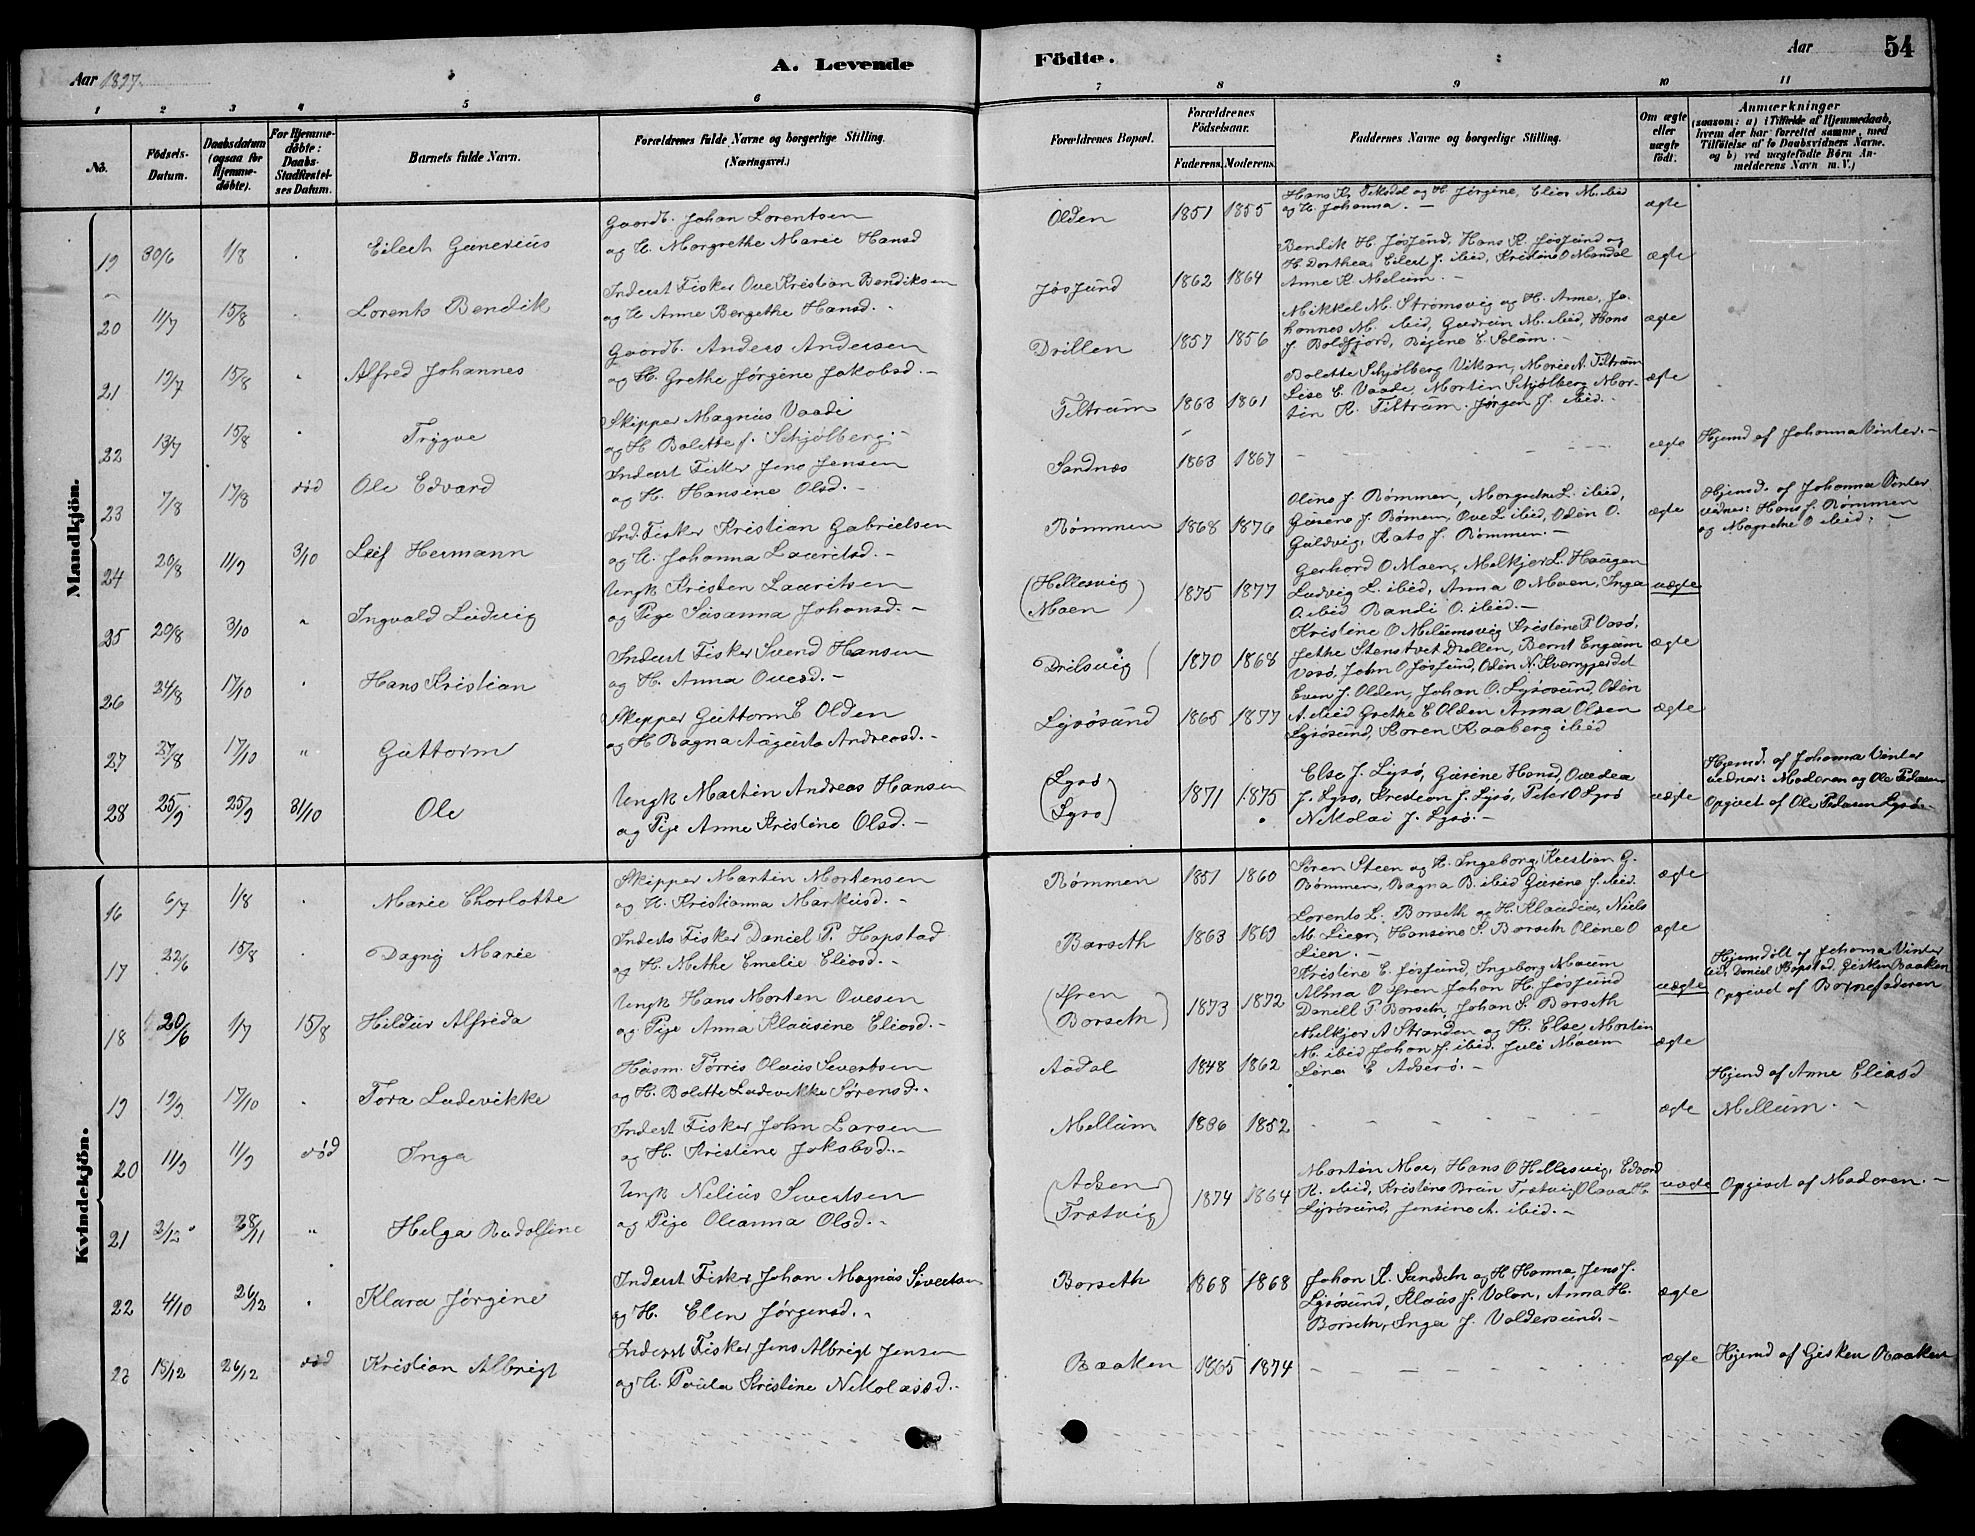 Aar 1897.
A. Levende
1 2 3 4 5 6
No.
Födsels-Datum.
Daabsdatum (ogsaa for Hjemme-döbte).
For Hjemme-döbte: Daabs-Stadfæstel-ses Datum.
Barnets fulde Navn.
Forældrenes fulde Navne og borgerlige Stilling.
(Næringsvei.)
Födte.
Aar
54
7 8 9 10 11
Forældrenes Bopæl.
Forældrenes Födselsaar.
Faderens. Moderens.
Faddernes Navne og borgerlige Stilling.
Om ægte eller uægte födt.
Anmærkninger
(saasom: a) i Tilfælde af Hjemmedaab,
hvem der har forrettet samme, med
Tilföielse af to Daabsvidners Navne.
og b) ved uægtefödte Börn An-
melderens Navn m. V.)
Mandkjön.
19 30/6 1/8 Eilert Gunerius
Gaardb. Johan Lorentsen
og H. Margrethe Marie Hansd
Olden 1851 1855
og H. Johanna. —
ægte
20 11/7 15/8 Lorents Bendik
Inderst Fisker Ove Kristian Bendiksen
og H Anne Bergethe Hansd. -
Jøssund 1862 1864
Bendik H. Jøssund, Hans K. Jøssund og
H. Dorthea, Eilert J. ibid, Kristine O Mandal
Anne K. Melum. —
ægte
21 19/7 15/8 Alfred Johannes
Gaardb. Anders Andersen
og H. Grethe Jørgine Jakobsd. -
Drillen 1857 1856
Mikkel M. Strømsvig og H. Anne, Jo-
hannes M. ibid, Gudrun M. ibid, Hans
ægte
22 13/7 15/8 Trygve
Skipper Magnus Vaade
og H Bolette J. Schjølberg. -
Tiltrum 1863 1861
Bolette Schjølberg Vikan, Marie A. Tiltrum
Lise E. Vaade, Morten Schjølberg Mor-
ten K. Tiltrum. Jørgen J. ibid. -
ægte
23 7/8 17/8 død Ole Edvard
Inderst Fisker Jens Jensen
og H. Hansine Olsd. -
Sandnæs 1863 1867
ægte Hjemd af Johanna Vinter. -
24 20/8 11/9 3/10 Leif Hermann
Ind. Fisker Kristian Gabrielsen
og H. Johanna Lauritsd. -
Rømmen 1868 1876
Oline J. Rømmen, Margrethe L. ibid,
Gurine J. Rømen, Ove L ibid, Odin O.
Guldvig, Kato J. Rømmen. -
ægte
Hjemd. af Johanna Vinter
vidner: Hans J. Rømmen
og Magrethe O ibid: -
25 20/8 3/10 Ingvald Ludvig
Ungk Kristen Lauritsen
og Pige Susanna Johansd. -
(Hellesvig
Moen) 1875 1877
Gerhard O Moen, Melkjer L. Haugen
Ludvig L. ibid, Anna O Moen, Inga
O. ibid Randi O. ibid. -
uægte
26 24/8 17/10 Hans Kristian
Inderst Fisker Svend Hansen
og H. Anna Ovesd. -
Drilsvig 1870 1868
Kristine O Melumsvig Kristine P. Vasø,
Jethe Stenstvet Drillen, Bernt
Vasø, John O Jøssund, Odin N. Kverngjerdet
ægte
27 27/8 17/10 " Guttorm
Skipper Guttorm E Olden
og H Ragna Augusta Andreasd. -
Lysøsund 1865 1877
Even J. Olden, Johan O. Lysøsund, Odin
A. ibid Grethe E Olden Anna Olsen
Lysøsund, Karen Raaberg ibid
ægte
28 25/9 25/9 31/10 Ole
Ungk Martin Andreas Hansen
og Pige Anne Kristine Olsd. -
(Lysø
Lysø) 1871 1875
Else J. Lysø, Gurine Hansd, Ovedea
J. Lysø, Kristian J. Lysø, Peter O Lysø
Nikolai J. Lysø. -
uægte
Hjemd. af Johanna Vinter
vidner: Moderen og Ole Pedersen
Opgivet af Ole Pedersen Lysø. -
Kvindekjön.
16 6/7 1/8 Marie Charlotte
Skipper Martin Mortensen
og H. Kristianna Markusd. -
Rømmen 1851 1860
Søren Steen og H. Ingeborg, Kristian G.
Rømmen, Ragna B. ibid Gurine J. ibid.
ægte
17 22/6 15/8 Dagny Marie
Inderts Fisker Daniel P. Hopstad
og H. Methe Emelie Eliasd. -
Borseth 1863 1869
Lorents L. Borseth og H. Klaudia, Niels
M. Lien, Hansine P. Borseth Oline O
Lien. -
ægte
18 20/6 1/7 15/8 Hildur Alfrida
Ungk Hans Morten Ovesen
og Pige Anna Klausine Eliasd. -
Borseth) 1873 1872
Kristine E. Jøssund, Ingeborg Maum
Daniell P. Borseth, Johan S. Borseth
uægte
Hjemdøbt af Johanna Vinter
Opgivet af Barnefaderen
19 19/9 17/10 Tora Ludevikke
Husm. Torris Olaus Sivertsen
og H. Bolette Ludevikke Sørensd. -
Aadal 1848 1862
Melkjer A Stranden og H. Else, Morten
M. ibid Johan J. ibid. Juli Maum
Lina E Adserø. -
ægte
20 11/9 11/9 død Inga
Inderst Fisker John Larsen
og H. Kristine Jakobsd. -
Mellum 1836 1852
ægte
Hjemd af Anne Eliasd
Mellum. -
21 2/10 28/11 " Helga Rudolfine
Ungk Nelius Sivertsen
og Pige Oleanna Olsd. -
Trætvig) 1874 1864
Morten Moe, Hans O Hellesvig, Edvard
K. ibid, Kristine Brun Trætvig, Olava H.
Lysøsund, Jensine A. ibid. -
uægte Opgivet af Moderen. -
22 4/10 26/12 Klara Jørgine
Inderst Fisker Johan Magnus Sivertsen
og H. Elen Jørgensd. -
Borseth 1868 1868
Johan K. Sundseth og H Hanna, Jens J.
Lysøsund, Klaus J. Valan, Anna H.
Borseth, Inga J. Valdersund. -
ægte
23 15/12 26/12 død Kristian Albrigt
Inderst Fisker Jens Albrigt Jensen
og H. Paula Kristine Nikolaisd. -
Baaken 1865 1874
ægte Hjemd af Gisken Baaken